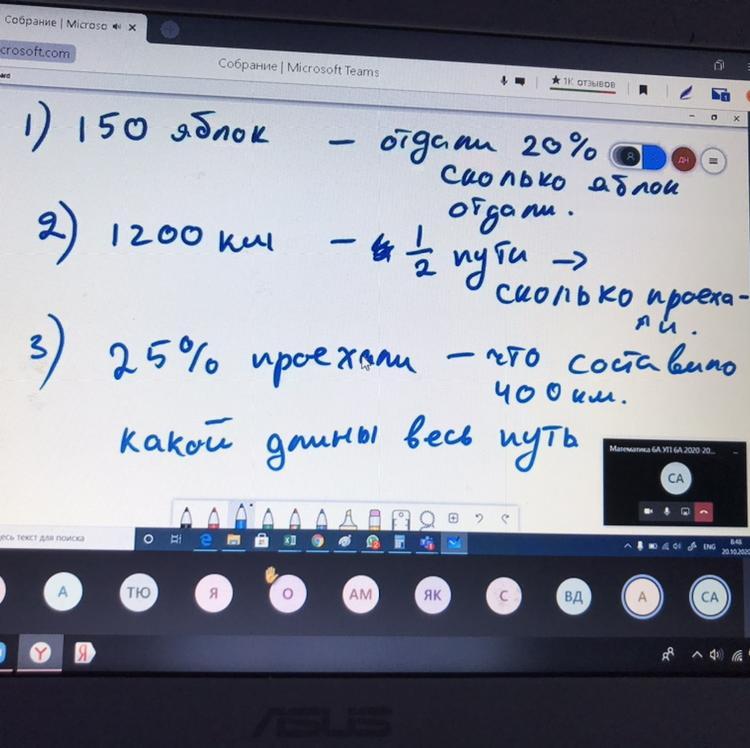 Собрание | Microso
crosoft.com
Собрание | Microsoft Teams
1К отзывов
1) 150 яблок – отдали 20%
сколько яблок
отдали.
ДН
2) 1200 км – 1/2 пути →
сколько проеха-
ли.
3) 25% проехали – что составило
400 км.
какой длины весь путь
Математика 6А УП 6А 2020-20...
СА
есь текст для поиска
ENG
8:48
20.10.2020
А ТЮ Я О АМ ЯК С ВД А СА
Y Я
ASUS